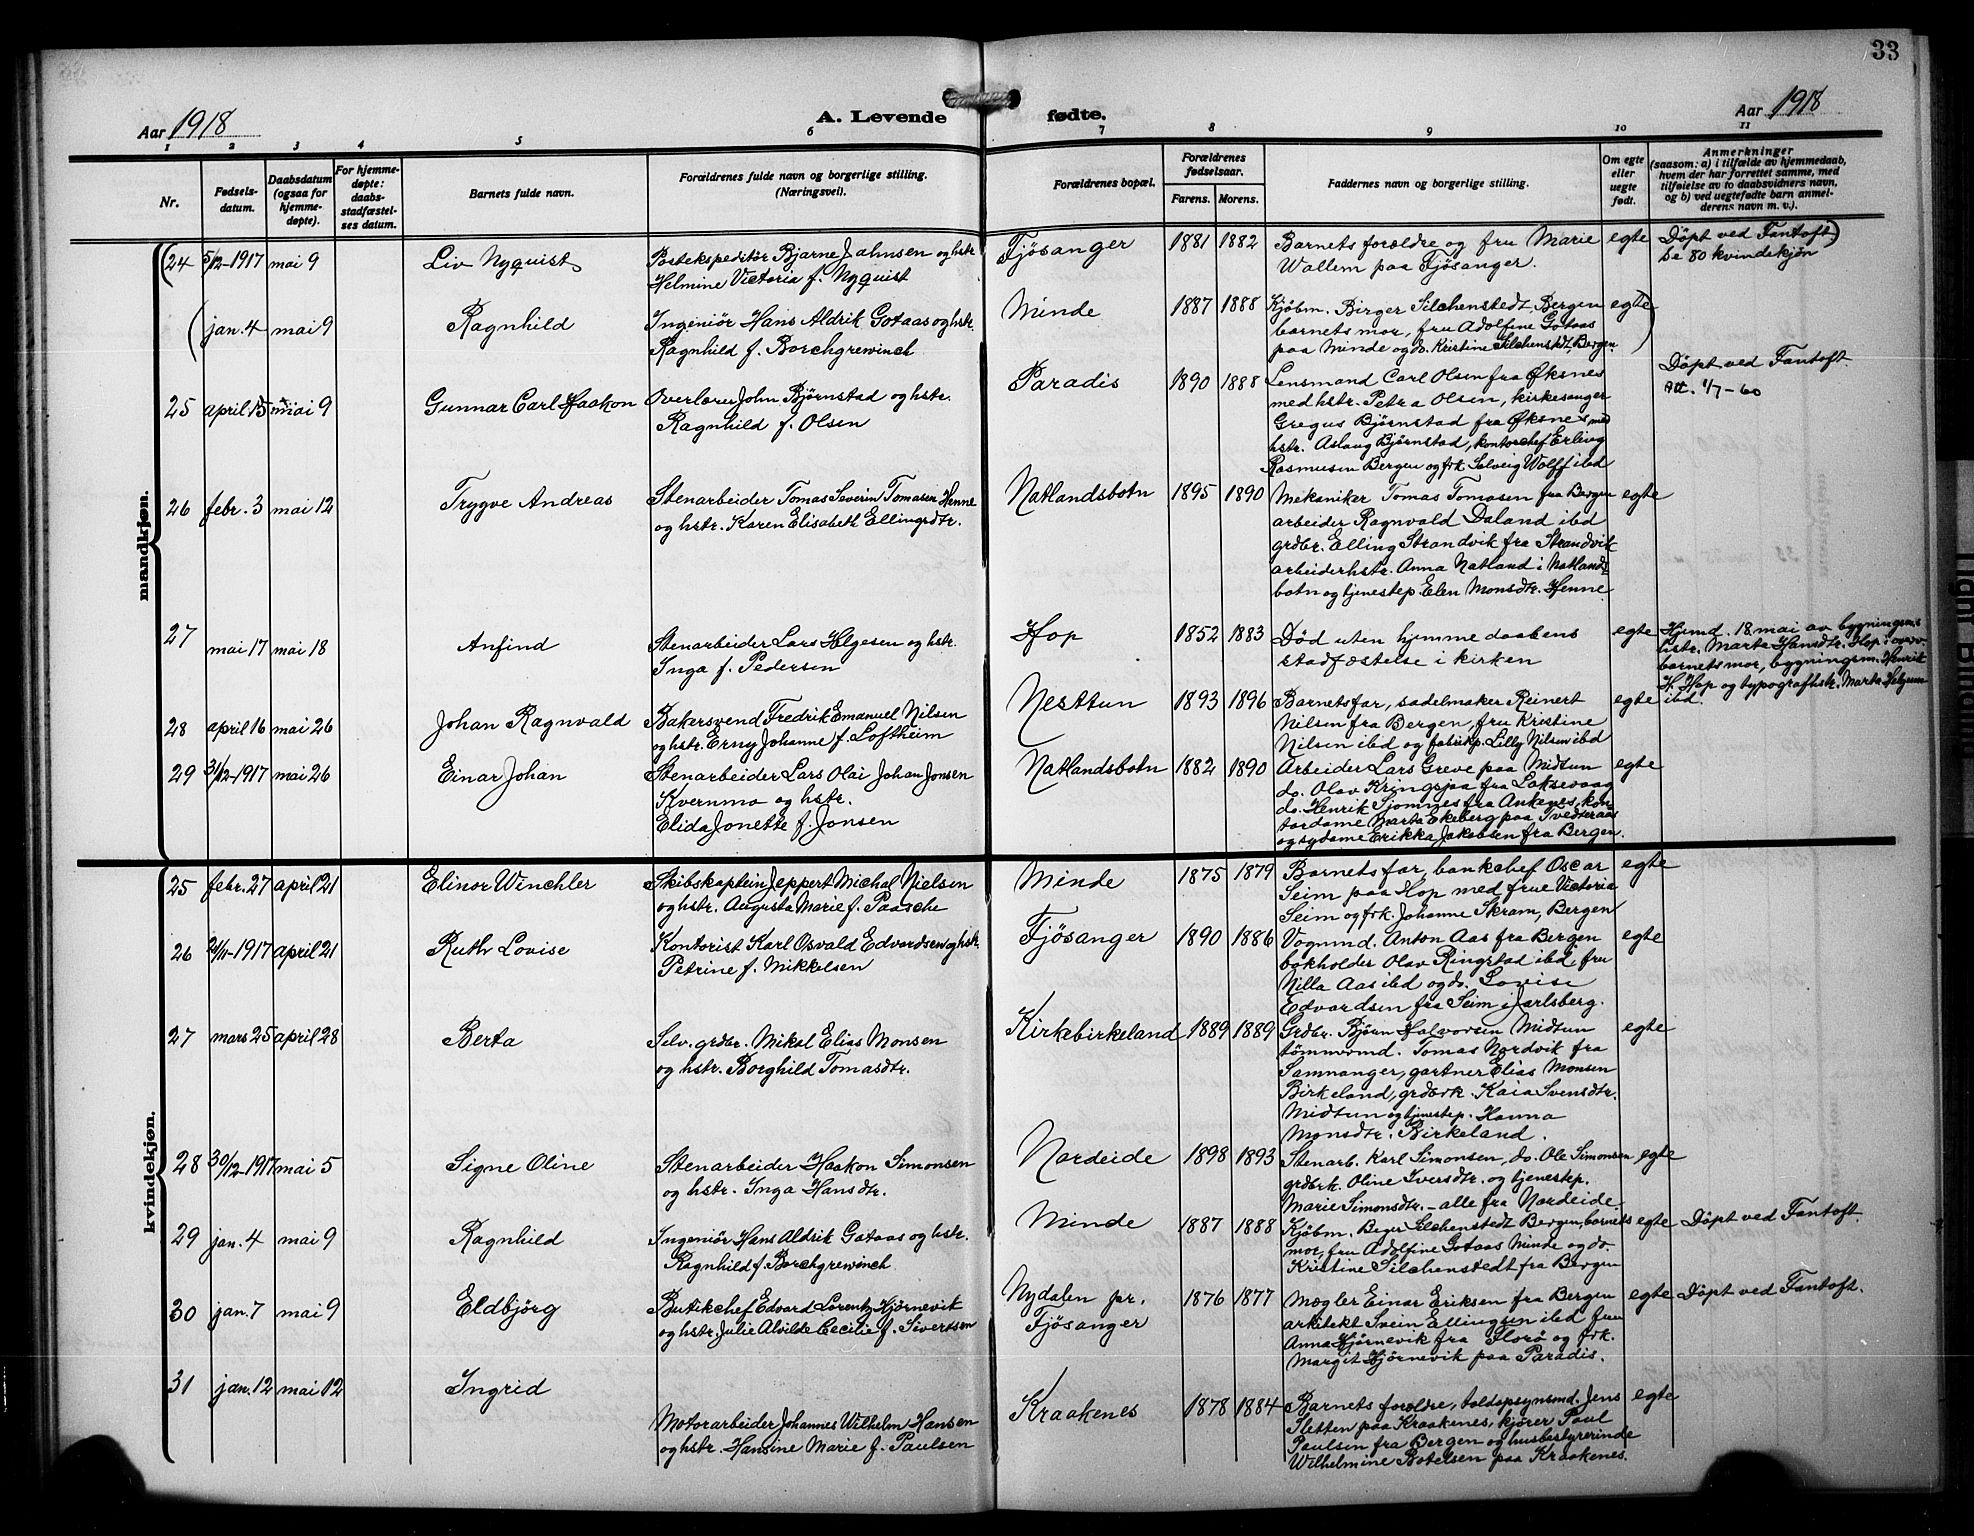 33
Aar 1918
A. Levende fødte.
Aar 1918
1 2 3 4 5 6 7 8 9 10 11
Nr.
Fødsels-
datum.
Daabsdatum
(ogsaa for
hjemme-
døpte).
For hjemme-
døpte:
daabs-
stadfæstel-
ses datum.
Barnets fulde navn.
Forældrenes fulde navn og borgerlige stilling.
(Næringsvei).
Forældrenes bopæl.
Forældrenes
fødselsaar.
Farens. Morens.
Faddernes navn og borgerlige stilling.
Om egte
eller
uegte
født.
Anmerkninger
(saasom: a) i tilfælde av hjemmedaab,
hvem der har forrettet samme, med
tilføielse av to daabsvidners navn,
og b) ved uegtefødte barn anmel-
derens navn m. v.).
mandkjøn.
(24 5/12-1917 mai 9
Liv Nyquist
Postekspeditör Bjarne Jahnsen og hstr
Helmine Victoria f. Nyquist
Fjösanger
1881 1882
Barnets forældre og fru Marie
Wallem paa Fjösanger.
egte
Döpt ved Fantoft)
Se 80 kvindekjön
(jan. 4 mai 9
Ragnhild
Ingeniör Hans Aldrik Gotaas og hstr.
Ragnhild f. Borchgrewinch
Minde
1887 1888
Kjöbm. Birger Silchenstedt, Bergen
barnets mor, fru Adolfine Gotaas
paa Minde og do. Kristine Silchenstedt, Bergen.
egte)
25 april 15 mai 9
Gunnar Carl Haakon
Overlærer John Björnstad og hstr.
Ragnhild f. Olsen
Paradis
1890 1888
Lensmand Carl Olsen fra Øksnes
med hstr. Petra Olsen, kirkesanger
Gregus Bjørnstad fra Øksnes med
hstr. Aslaug Bjørnstad, kontorchef Erling
Rasmusen Bergen og frk Solveig Wolff ibd
Döpt ved Fantoft.
Att. 1/7-60
26 febr. 3 mai 12
Trygve Andreas
Stenarbeider Tomas Severin Tomasen Henne
og hstr. Karen Elisabeth Ellingsdtr.
Natlandsbotn
1895 1890
Mekaniker Tomas Tomasen fra Bergen
arbeider Ragnvald Daland ibd
grdbr. Elling Strandvik fra Strandvik
arbeiderhstr. Anna Natland i Natlands-
botn og tjenestep. Elen Monsdtr. Henne
egte
27 mai 17 mai 18
Anfind
Stenarbeider Lars Helgesen og hstr.
Inga f. Pedersen
Hop
1852 1883
Död uten hjemme daabens
stadfæstelse i kirken
egte
Hjemd. 18 mai av bygningsms
hstr. Marta Hansdtr. Hop i overv.
barnets mor, bygningsm. Henrik
H. Hop og typografhstr. Marta Helgesen
ibd.
28 april 16 mai 26
Johan Ragnvald
Bakersvend Fredrik Emanuel Nilsen
og hstr. Erny Johanne f. Loftheim
Nesttun
1893 1896
Barnets far, sadelmaker Reinert
Nilsen fra Bergen, fru Kristine
Nilsen ibd og fabrikp. Lilly Nilsen ibd
egte
29 31/12-1917 mai 26
Einar Johan
Stenarbeider Lars Olai Johan Jonsen
Kvernmo og hstr.
Elida Jonette f. Jonsen
Natlandsbotn
1882 1890
Arbeider Lars Greve paa Midtun
do. Olav Kringsjaa fra Laksevaag
do. Henrik Sjomnes fra Ankenes, kon-
tordame Marta Ekeberg paa Tvedteraas
og sydame Erikka Jakobsen fra Bergen.
egte
kvindekjøn.
25 febr. 27 april 21
Elinor Winchler
Skibskaptein Jeppert Michal Nielsen
og hstr. Augusta Marie f. Paasche
Minde
1875 1879
Barnets far, bankchef Oscar
Seim paa Hop med frue Victoria
Seim og frk. Johanne Skram, Bergen
egte
26 21/11-1917 april 21
Ruth Lovise
Kontorist Karl Osvald Edvardsen og hstr.
Petrine f. Mikkelsen
Fjösanger
1890 1886
Vognmd. Anton Aas fra Bergen
bokholder Olav Ringstad ibd, fru
Nilla Aas ibd og do. Lovise
Edvardsen fra Seim i Jarlsberg.
egte
27 mars 25 april 28
Berta
Selv. grdbr. Mikal Elias Monsen
og hstr. Borghild Tomasdtr.
Kirkebirkeland
1889 1889
Grdbr. Bjørn Halvorsen Midtun
tömmermd. Tomas Nordvik fra
Samnanger, gartner Elias Monsen
Birkeland, grdbrk. Kaia Svensdtr.
Midtun og tjenestep. Hanna
Monsdtr. Birkeland.
egte
28 30/12-1917 mai 5
Signe Oline
Stenarbeider Haakon Simonsen
og hstr. Inga Hansdtr.
Nordeide
1898 1893
Stenarb. Karl Simonsen, do. Ole Simonsen
grdbrk. Oline Iversdtr. og tjenestep.
Marie Simonsdtr. - alle fra Nordeide.
egte
29 jan. 4 mai 9
Ragnhild
Ingeniör Hans Aldrik Gotaas og hstr.
Ragnhild f. Borchgrewinch
Minde
1887 1888
Kjöbm. Birger Silchenstedt Bergen, barnets
mor, fru Adolfine Gotaas Minde og do.
Kristine Silchenstedt fra Bergen
egte
Döpt ved Fantoft.
30 jan. 7 mai 9
Eldbjörg
Butikchef Edvard Lorentz Hjörnevik
og hstr. Julie Alvilde Cecilie f. Sivertsen
Nydalen pr.
Fjösanger
1876 1877
Mægler Einar Eriksen fra Bergen
arkitekt Svein Ellingsen ibd fru
Anna Hjörnevik fra Florö og frk.
Margit Hjörnevik paa Paradis.
egte
Döpt ved Fantoft.
31 jan. 12 mai 12
Ingrid
Motorarbeider Johannes Wilhelm Hansen
og hstr. Hansine Marie f. Paulsen
Kraakenes
1878 1884
Barnets forældre, toldopsynsmd. Jens
Sletten paa Kraakenes, kjører Paul
Paulsen fra Bergen og husbestyrerinde
Wilhelmine Botelsen paa Kraakenes.
egte